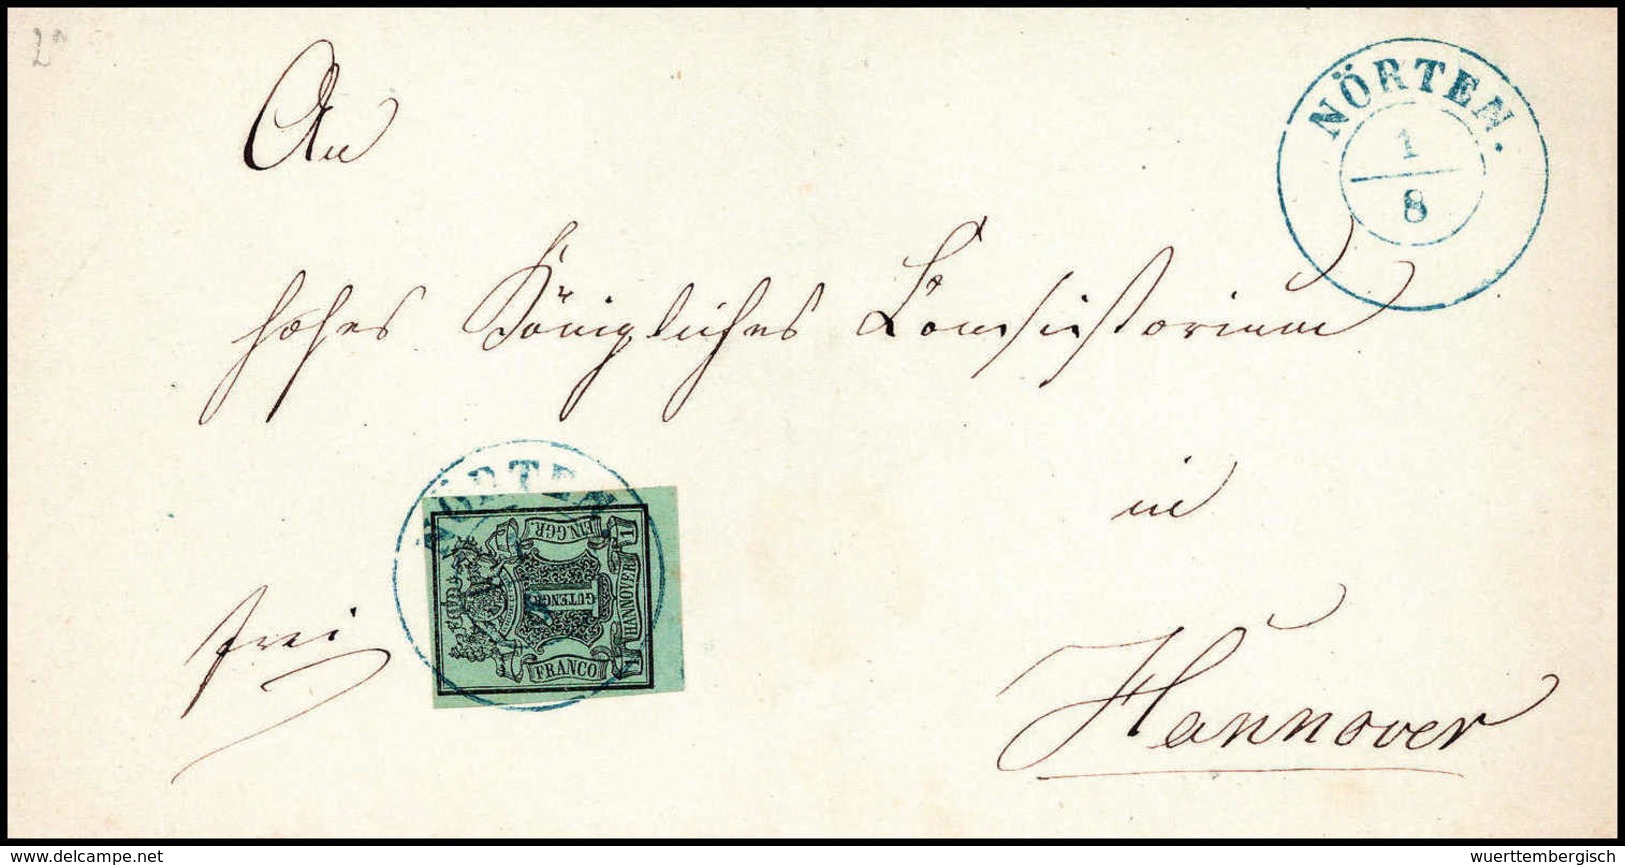 An
NÖRTEN.
1
8
hohes Königliches Consistorium
in
Hannover
frei
NÖRTEN.
EIN.GGR.
HANNOVER
1
GUTENGR
FRANCO
© www.delcampe.net
wuerttembergisch